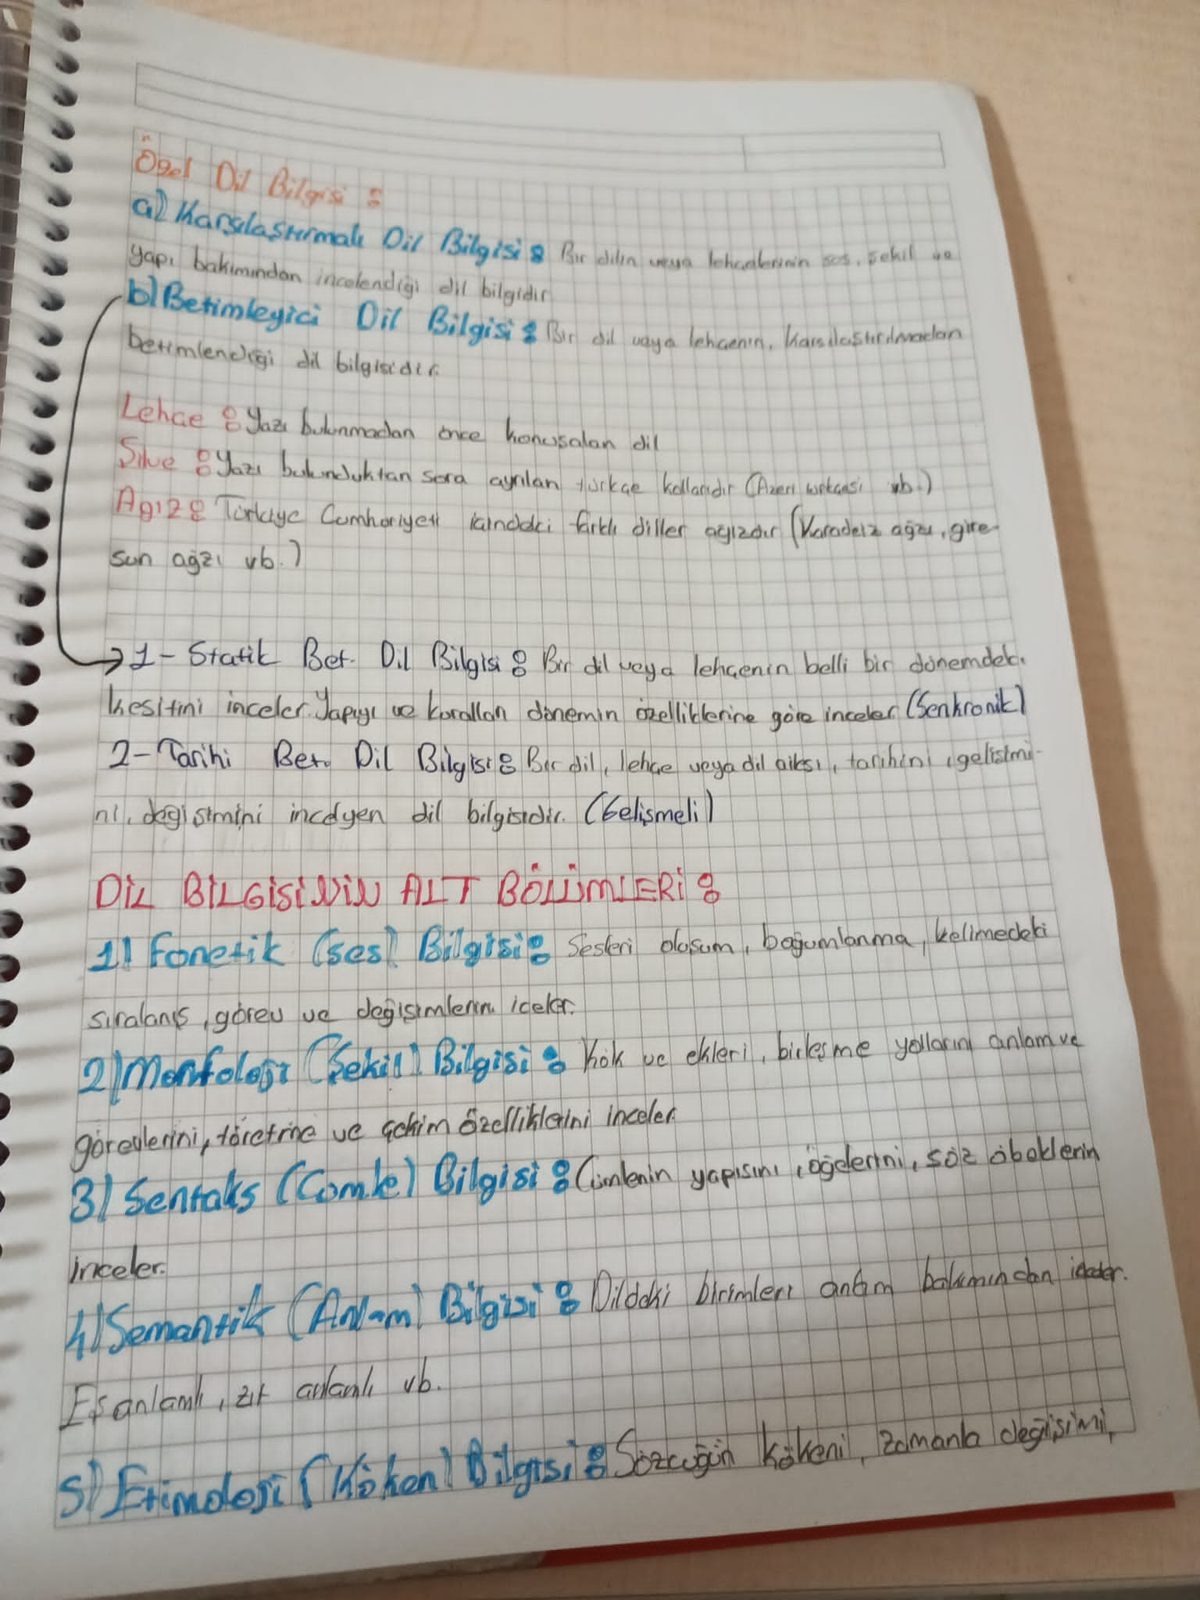 Özel Dil Bilgisi :
a) Karşılaştırmalı Dil Bilgisi : Bir dilin veya lehçelerinin ses, şekil ve
yapı bakımından incelendiği dil bilgidir
b) Betimleyici Dil Bilgisi : Bir dil veya lehçenin, karşılaştırılmadan
betimlendiği dil bilgisidir.
Lehçe : Yazı bulunmadan önce konuşulan dil
Şive : Yazı bulunduktan sora ayrılan türkçe kollarıdır (Azeri vb.)
Ağız : Türkiye Cumhuriyeti içindeki farklı diller ağızdır (Karadeiz ağzı, gire-
sun ağzı vb.)
1- Statik Bet. Dil Bilgisi : Bir dil veya lehçenin belli bir dönemdeki
kesitini inceler. Yapıyı ve kuralları dönemin özelliklerine göre inceler (Senkronik)
2- Tarihi Bet. Dil Bilgisi : Bir dil, lehçe veya dil ailesi, tarihini, gelişimi-
ni, değişimini inceleyen dil bilgisidir. (Gelişmeli)
DİL BİLGİSİNİN ALT BÖLÜMLERİ :
1) Fonetik (ses) Bilgisi : Sesleri oluşum, boğumlanma, kelimedeki
sıralanış, görev ve değişimlerini iceler.
2) Morfoloji (Şekil) Bilgisi : Kök ve ekleri, birleşme yollarını anlam ve
görevlerini, türetme ve çekim özelliklerini inceler
3) Sentaks (Cümle) Bilgisi : Cümlenin yapısını, öğelerini, söz öbeklerin
inceler.
4) Semantik (Anlam) Bilgisi : Dildeki birimleri anlam bakımından iceler.
Eş anlamlı, zıt anlamlı vb.
5) Etimoloji (Köken) Bilgisi : Sözcüğün kökeni, zamanla değişimi,